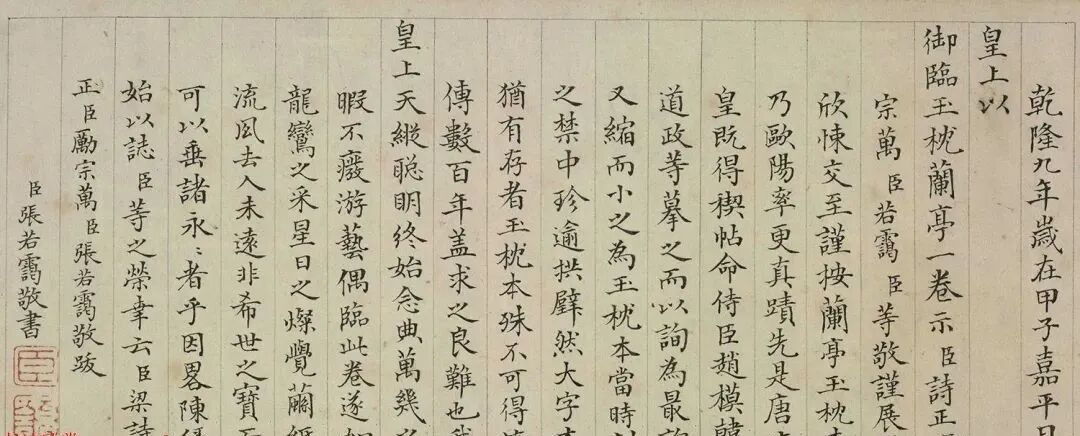 乾隆九年歲在甲子嘉平
皇上以
御臨玉枕蘭亭一卷示臣詩正
宗萬臣若靄臣等敬謹展
欣悚交至謹按蘭亭玉枕
乃歐陽率更真蹟先是唐
皇既得禊帖命侍臣趙模韓
道政等摹之而以詢為最
又縮而小之為玉枕本當時
之禁中珍逾拱璧然大字
猶有存者玉枕本殊不可得
傳數百年盖求之良難也
皇上天縱聰明終始念典萬幾
暇不廢游藝偶臨此卷遂
龍鸞之采星日之燦覺繭
流風去人未遠非希世之寶
可以垂諸永〻者乎因畧陳
始以誌臣等之榮幸云臣梁詩
正臣勵宗萬臣張若靄敬跋
臣張若靄敬書